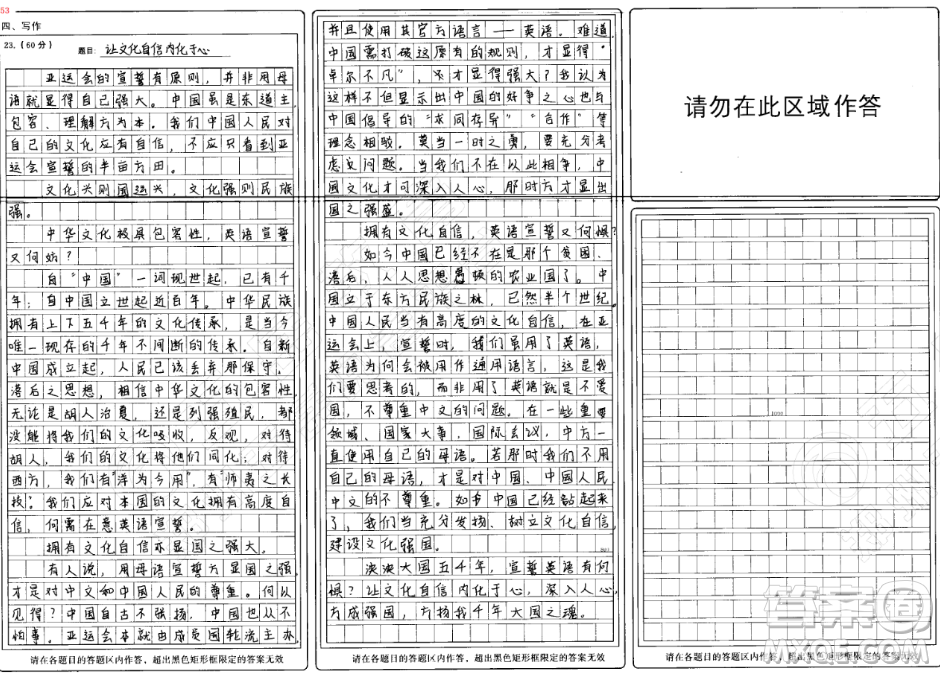 53
四、写作
23.(60分)
题目: 让文化自信内化于心
亚运会的宣誓有原则，并非用母
语就显得自己强大。中国虽是东道主，
包容、理解方为本。我们中国人民对
自己的文化应有自信，不应只看到亚
运会宣誓的半亩方田。
文化兴则国运兴，文化强则民族
强。
中华文化极具包容性，英语宣誓
又何妨？
自"中国"一词现世起，已有千
年；自中国立世起近百年。中华民族
拥有上下五千年的文化传承，是当今
唯一现存的千年不间断的传承。自新
中国成立起，人民已该丢弃那保守、
落后之思想，相信中华文化的包容性
无论是胡人治夏，还是列强殖民，都
没能将我们的文化吸收，反观，对待
胡人，我们的文化将他们同化；对待
西方，我们有"洋为今用"，有"师夷之长
技"。我们应对本国的文化拥有高度自
信，何需在意英语宣誓。
拥有文化自信亦显国之强大。
有人说，用母语宣誓方显国之强，
才是对中文和中国人民的尊重。何以
见得？中国自古不张扬，中国也从不
怕事。亚运会本就由成员国轮流主办，
并且使用其官方语言——英语。难道
中国需打破这原有的规则，才显得"
卓尔不凡"，才显得强大？我认为
这样不但显示出中国的好争之心也与
中国倡导的"求同存异""合作"等
理念相驳。莫当一时之勇，要充分考
虑文问题。当我们不在从此相争，中
国文化才可深入人心，那时方才显出
国之强盛。
拥有文化自信，英语宣誓又何惧？
如今中国已经不在是那个贫困、
落后，人人思想愚顿的农业国了。中
国立于东方民族之林，已然半个世纪。
中国人民当有高度的文化自信，在亚
运会上，宣誓时，我们虽用了英语，
英语为何会被用作通用语言，这是我
们要思考的，而非用了英语就是不爱
国，不尊重中文的问题，在一些重要
领域、国家大事，国际会议，中方一
直使用自己的母语。若那时我们不用
自己的母语，才是对中国、中国人民
中文的不尊重。如中国已经站起来
了，我们当充分发扬、树立文化自信，
建设文化强国。
泱泱大国五千年，宣誓英语有何
惧？让文化自信内化于心，深入人心，
方成强国，方扬我千年大国之魂。
请在各题目的答题区内作答，超出黑色矩形框限定的答案无效
请在各题目的答题区内作答，超出黑色矩形框限定的答案无效
请勿在此区域作答
1000
请在各题目的答题区内作答，超出黑色矩形框限定的答案无效
答案圈
MXQE.COM